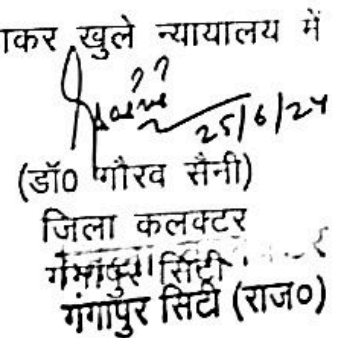 ाकर खुले न्यायालय में
25/6/24
(डॉ0 गौरव सैनी)
जिला कलक्टर
गंगापुर सिटी
गंगापुर सिटी (राज०)